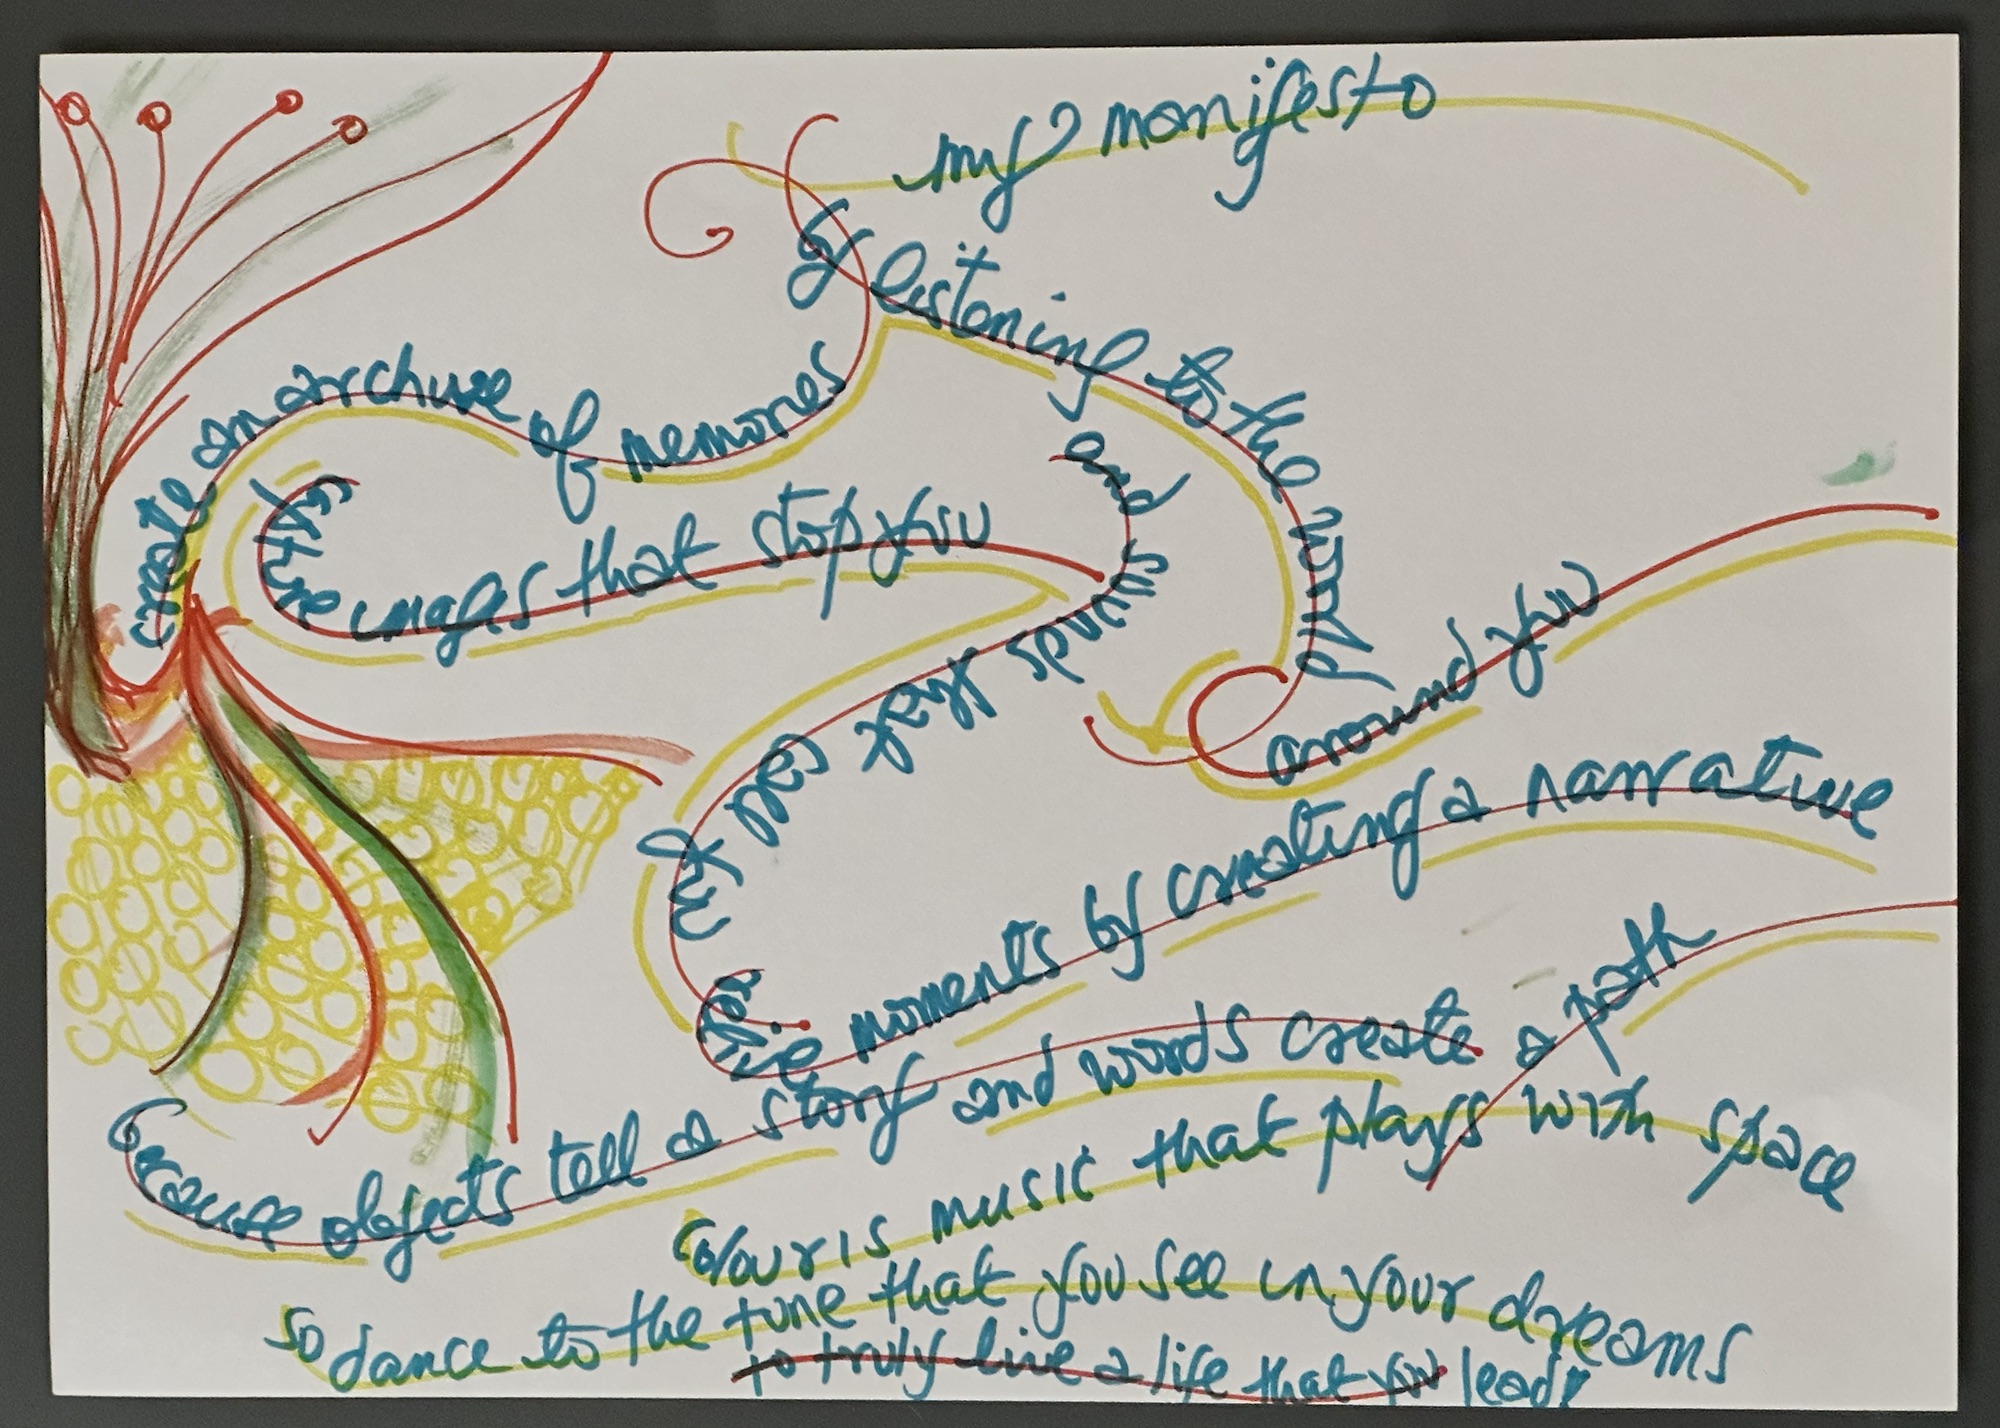 my manifesto
create an archive of memories
by listening to the world
around you
capture images that stop you
and sounds that call you
relive moments by creating a narrative
because objects tell a story and words create a path
colour is music that plays with space
so dance to the tune that you see in your dreams
to truly live a life that you lead!